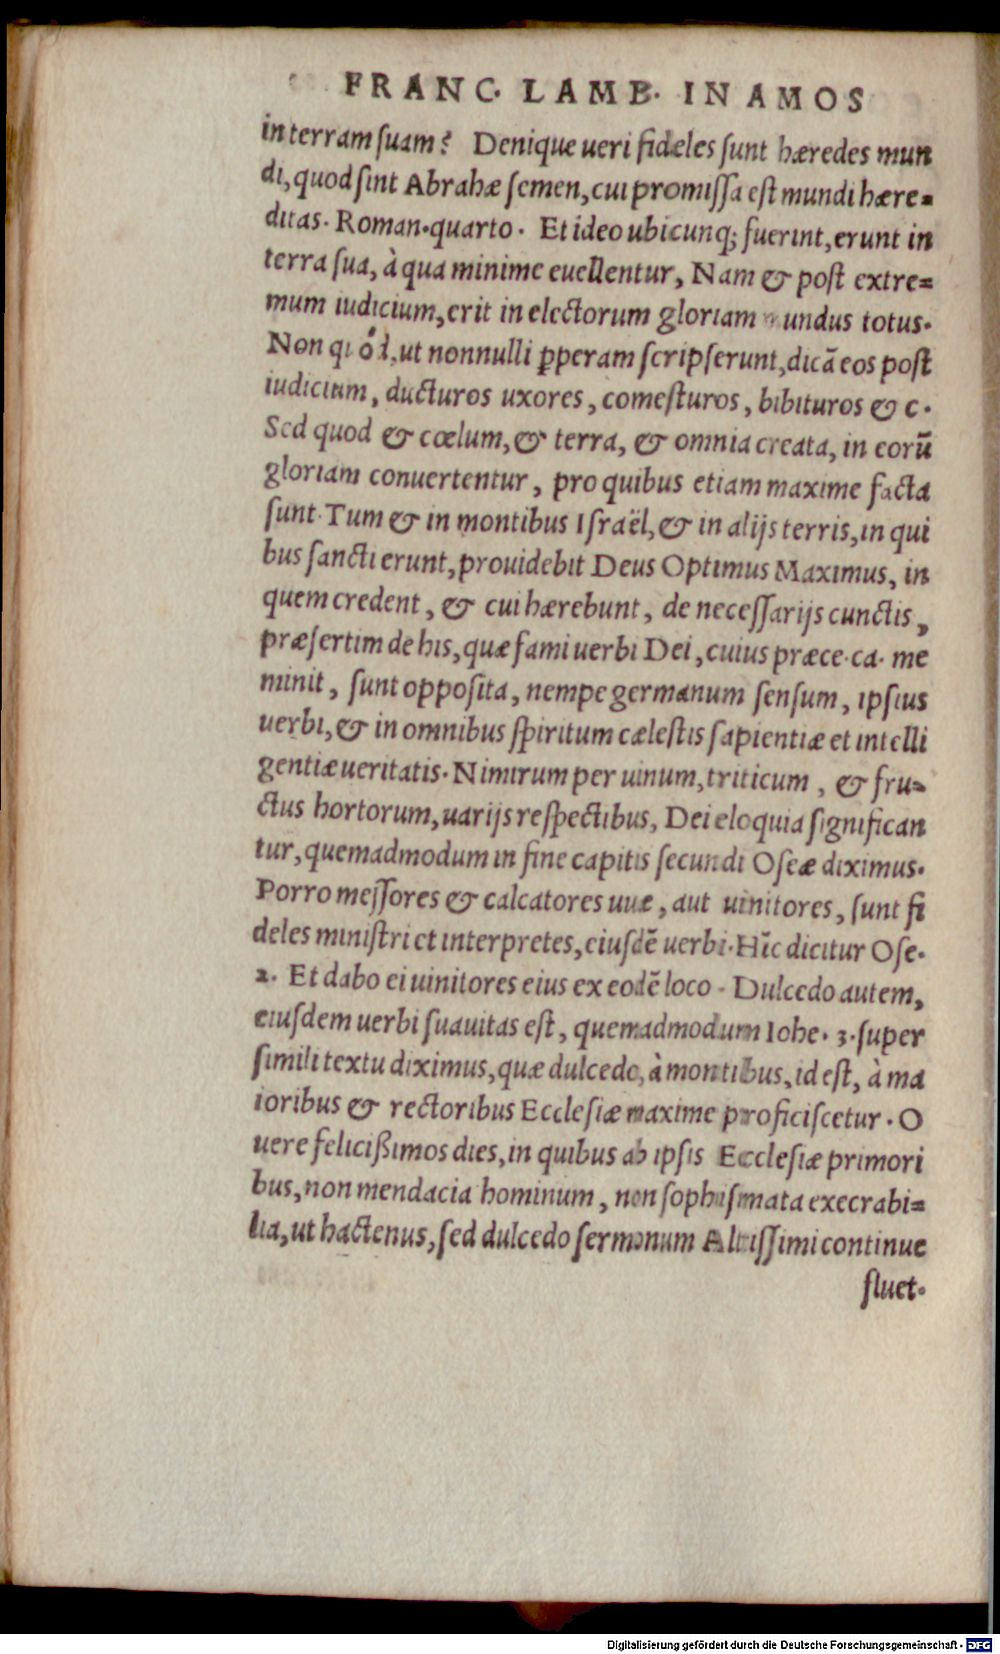 FRANC. LAMB. IN AMOS
in terram suam? Denique ueri fideles sunt hæredes mun
di, quod sint Abrahæ semen, cui promissa est mundi hære=
ditas. Roman. quarto. Et ideo ubicunq; fuerint, erunt in
terra sua, à qua minime euellentur, Nam & post extre=
mum iudicium, erit in electorum gloriam mundus totus.
Non quód, ut nonnulli ꝑperam scripserunt, dicā eos post
iudicium, ducturos uxores, comesturos, bibituros & c.
Sed quod & cœlum, & terra, & omnia creata, in eorū
gloriam conuertentur, pro quibus etiam maxime facta
sunt. Tum & in montibus Israël, & in alijs terris, in qui
bus sancti erunt, prouidebit Deus Optimus Maximus, in
quem credent, & cui hærebunt, de necessarijs cunctis,
præsertim de his, quæ fami uerbi Dei, cuius præce. ca. me
minit, sunt opposita, nempe germanum sensum, ipsius
uerbi, & in omnibus spiritum cælestis sapientiæ et intelli
gentiæ ueritatis. Nimirum per uinum, triticum, & fru=
ctus hortorum, uarijs respectibus, Dei eloquia significan
tur, quemadmodum in fine capitis secundi Oseæ diximus.
Porro messores & calcatores uuæ, aut uinitores, sunt fi
deles ministri et interpretes, eiusdē uerbi. Hīc dicitur Ose.
2. Et dabo ei uinitores eius ex eodē loco. Dulcedo autem,
eiusdem uerbi suauitas est, quemadmodum Iohe. 3. super
simili textu diximus, quæ dulcedo, à montibus, id est, à ma
ioribus & rectoribus Ecclesiæ maxime proficiscetur. O
uere felicißimos dies, in quibus ab ipsis Ecclesiæ primori
bus, non mendacia hominum, non sophismata execrabi=
lia, ut hactenus, sed dulcedo sermonum Altissimi continue
fluet.
Digitalisierung gefördert durch die Deutsche Forschungsgemeinschaft - DFG